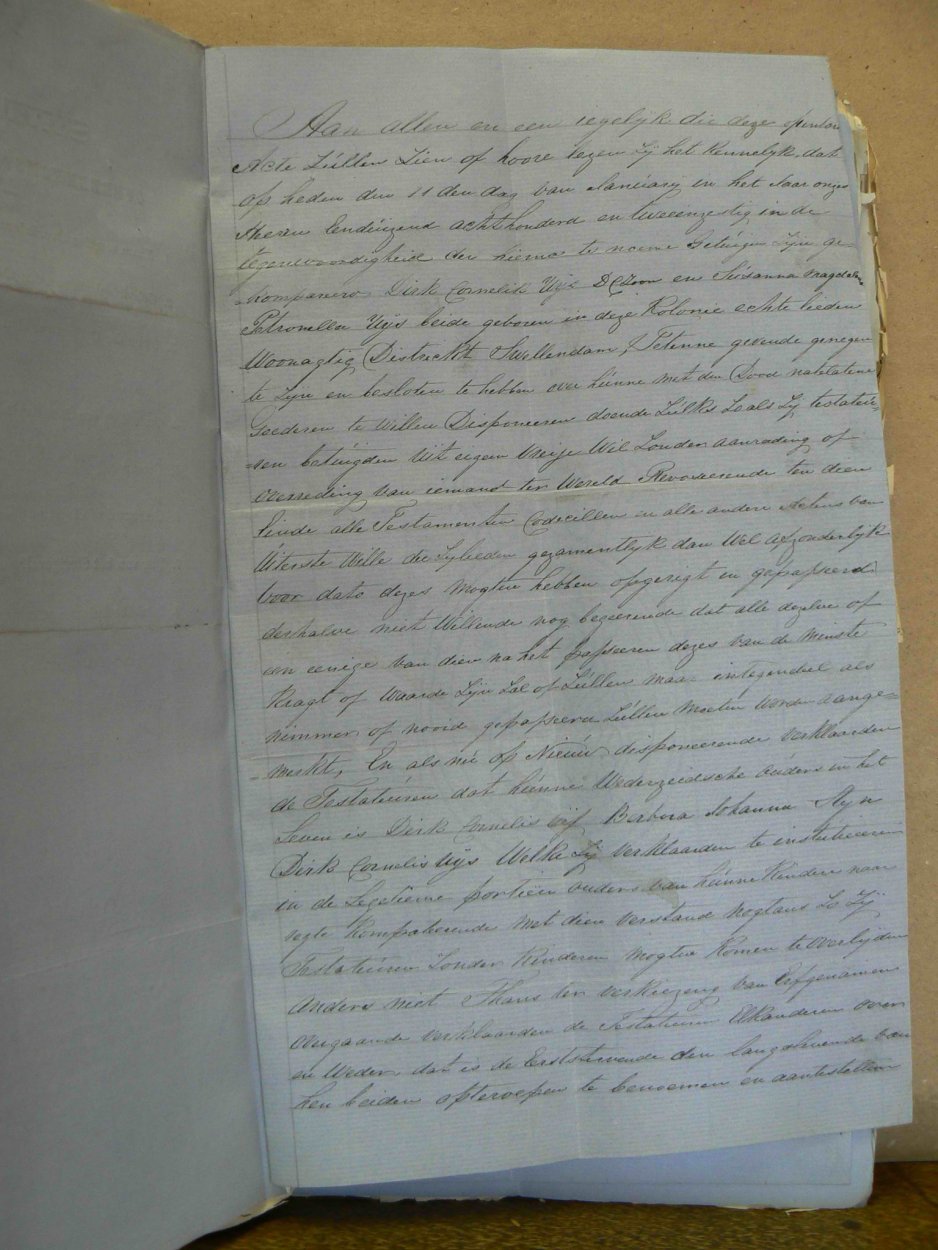 Aan allen en een iegelyk die deze openbare
Acte Zúllen Zien of hoore lezen Zÿ het kennelyk, dat
op heden den 11 den dag van Janúarÿ in het Jaar onzes
Heeren Eendúizend achthonderd en tweeenzestig in de
tegenwoordigheid der hierna te noeme Getúigen Zÿn ge-
-kompareerd Dirk Cornelis Uÿs DCZoon en Súsanna Magdalena
Petronella Uÿs beide geboren in deze Kolonie echte lieden
Woonagtig Districkt Swellendam, Tekenne gevende genegen
te Zÿn en besloten te hebben over húnne met den Dood natelatene
Goederen te Willen Disponeren doende Zúlks Zoals Zÿ testateú=
=ren betúigden Uit eigen Vreije Wil Zonder aanrading of
overreding van iemand ter Wereld Revoceerende ten deen
Einde alle Testamenten Codicillen en alle andere Actens van
Uiterste Wille die Zÿlieden gezamentlyk dan Wel afzonderlyk
voor dato dezes mogten hebben opgeregt en gepasseerd
derhalve niet Willende nog begeerende dat alle dezelve of
een eenige van dien na het passeeren dezes van de minste
Kragt of Waarde Zÿn Zal of Zúllen maar integendeel als
nimmer of nooid gepasseerd Zúllen moeten worden aange=
merkt, En als nú op Nieúw disponeerende verklaarden
de Testateúren dat húnne Wederzeidsche oúders in het
Leven is Dirk Cornelis Uÿs Berbera Johanna
Dirk Cornelis Uÿs Welke Zÿ verklaarden te institueren
in de Legetieme portien ouders van húnne Kinders naar
regte kompeterende met dien verstand nogtans Zo Zÿ
Testateúren Zonder Kinderen mogten komen te overlÿden
anders niet Thans ter verkiezing van Erfgenamen
overgaande verklaarden de Testateúren Elkanderen over
en Weder, dat is de Eerststervende den langstlevende van
hen beiden opteroepen te benoemen en aantestellen